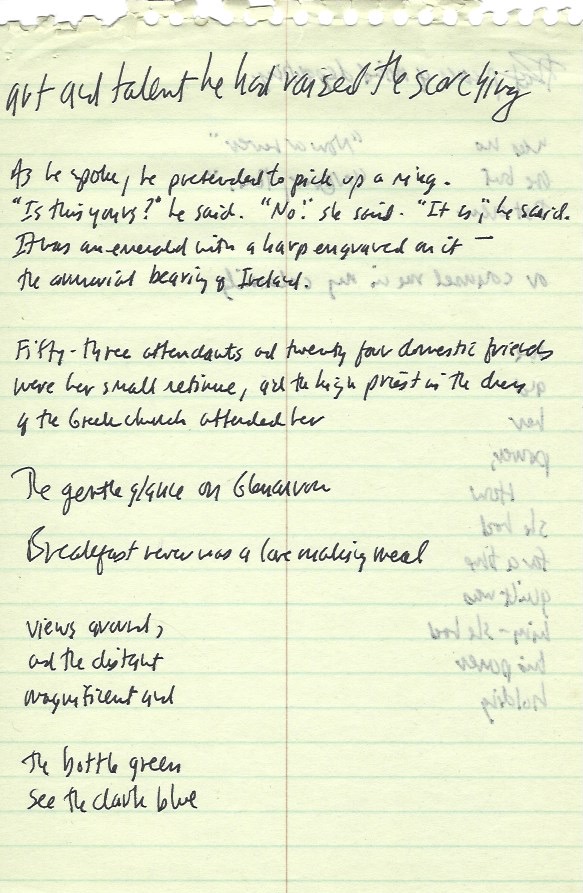 art and talent he had raised the scorching
As he spoke, he pretended to pick up a ring.
"Is this yours?" he said. "No." she said. "It is" he said.
It was an emerald with a harp engraved on it —
the armorial bearing of Ireland.
Fifty-three attendants and twenty four domestic friends
were her small retinue, and the high priest in the dress
of the Greek church attended her
The gentle glance on Glenarvon
Breakfast never was a love making meal
views around,
and the distant
magnificent and
the bottle green
see the dark blue